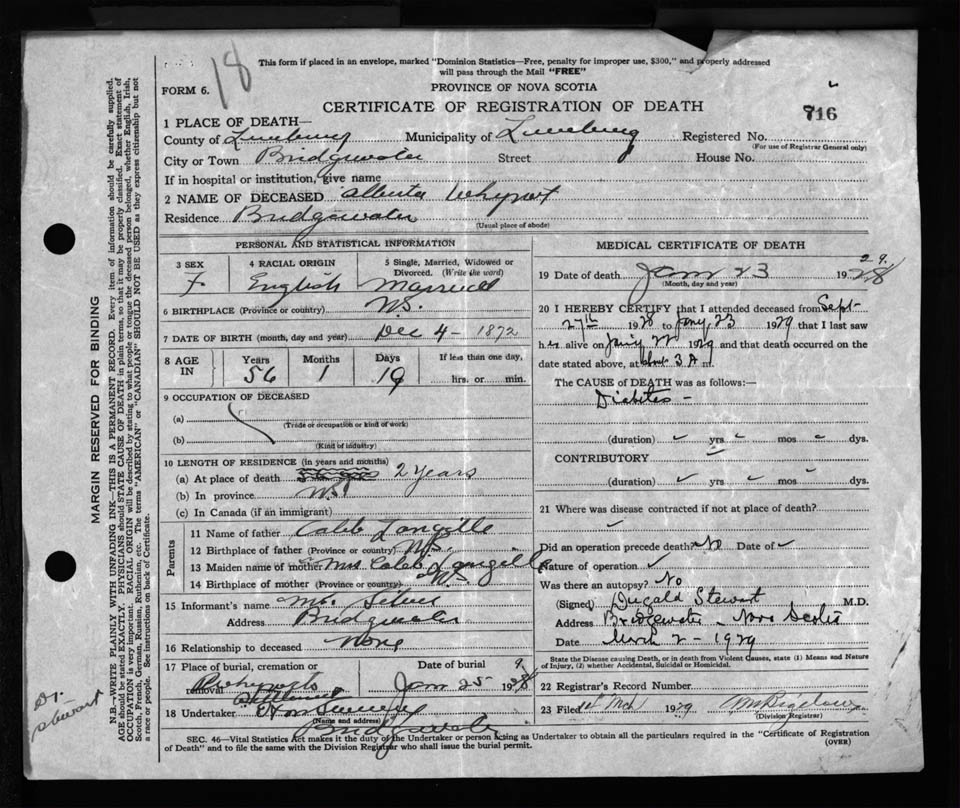 18
This form if placed in an envelope, marked "Dominion Statistics—Free, penalty for improper use, $300," and properly addressed
will pass through the Mail "FREE"
FORM 6.
PROVINCE OF NOVA SCOTIA
CERTIFICATE OF REGISTRATION OF DEATH
716
1 PLACE OF DEATH—
County of Lunenburg Municipality of Lunenburg Registered No.
(For use of Registrar General only)
City or Town Bridgewater Street House No.
If in hospital or institution, give name
2 NAME OF DECEASED Alberta Whynot
Residence Bridgewater
(Usual place of abode)
PERSONAL AND STATISTICAL INFORMATION
3 SEX 4 RACIAL ORIGIN 5 Single, Married, Widowed or
Divorced. (Write the word)
F English Married
6 BIRTHPLACE (Province or country) N.S.
7 DATE OF BIRTH (month, day and year) Dec 4 - 1872
8 AGE IN Years Months Days If less than one day,
56 1 19 hrs. or min.
9 OCCUPATION OF DECEASED
(a)
(Trade or occupation or kind of work)
(b)
(Kind of industry)
10 LENGTH OF RESIDENCE (in years and months)
(a) At place of death 2 years
(b) In province N.S.
(c) In Canada (if an immigrant)
Parents
11 Name of father Caleb Langille
12 Birthplace of father (Province or country) N.S.
13 Maiden name of mother Mrs Caleb Langille
14 Birthplace of mother (Province or country) N.S.
15 Informant's name Mr.
Address Bridgewater
16 Relationship to deceased None
17 Place of burial, cremation or Date of burial
removal Jan 25 1928 9
18 Undertaker
(Name and address)
Bridgewater
MEDICAL CERTIFICATE OF DEATH
19 Date of death Jan 23 1928 29.
(Month, day and year)
20 I HEREBY CERTIFY that I attended deceased from Sept-
27th 1928 to Jany, 23 1929 that I last saw
her alive on Jany 22 1929 and that death occurred on the
date stated above, at about 3 A m.
The CAUSE of DEATH was as follows:—
Diabetes -
(duration) yrs mos dys.
CONTRIBUTORY
(duration) yrs mos dys.
21 Where was disease contracted if not at place of death?
Did an operation precede death? No Date of
Nature of operation
Was there an autopsy? No
(Signed) Dugald Stewart M.D.
Address Bridgewater - Nova Scotia
Date March 2 - 1929
State the Disease causing Death, or in death from Violent Causes, state (1) Means and Nature
of Injury, (2) whether Accidental, Suicidal or Homicidal.
22 Registrar's Record Number
23 Filed 1929
(Division Registrar)
SEC. 46—Vital Statistics Act makes it the duty of the Undertaker or person acting as Undertaker to obtain all the particulars required in the "Certificate of Registration
of Death" and to file the same with the Division Registrar who shall issue the burial permit.
(OVER)
MARGIN RESERVED FOR BINDING
N.B.—WRITE PLAINLY WITH UNFADING INK—THIS IS A PERMANENT RECORD. Every item of information should be carefully supplied.
AGE should be stated EXACTLY. PHYSICIANS should STATE CAUSE OF DEATH in plain terms, so that it may be properly classified. Exact statement of
OCCUPATION is very important. RACIAL ORIGIN will be described by stating to what people or tongue the deceased person belonged, whether English, Irish,
Scotch, French, German, Russian, Ruthenian, etc. The terms "AMERICAN" or "CANADIAN" SHOULD NOT BE USED as they express citizenship but not
a race or people. See instructions on back of Certificate.
Dr.
Stewart